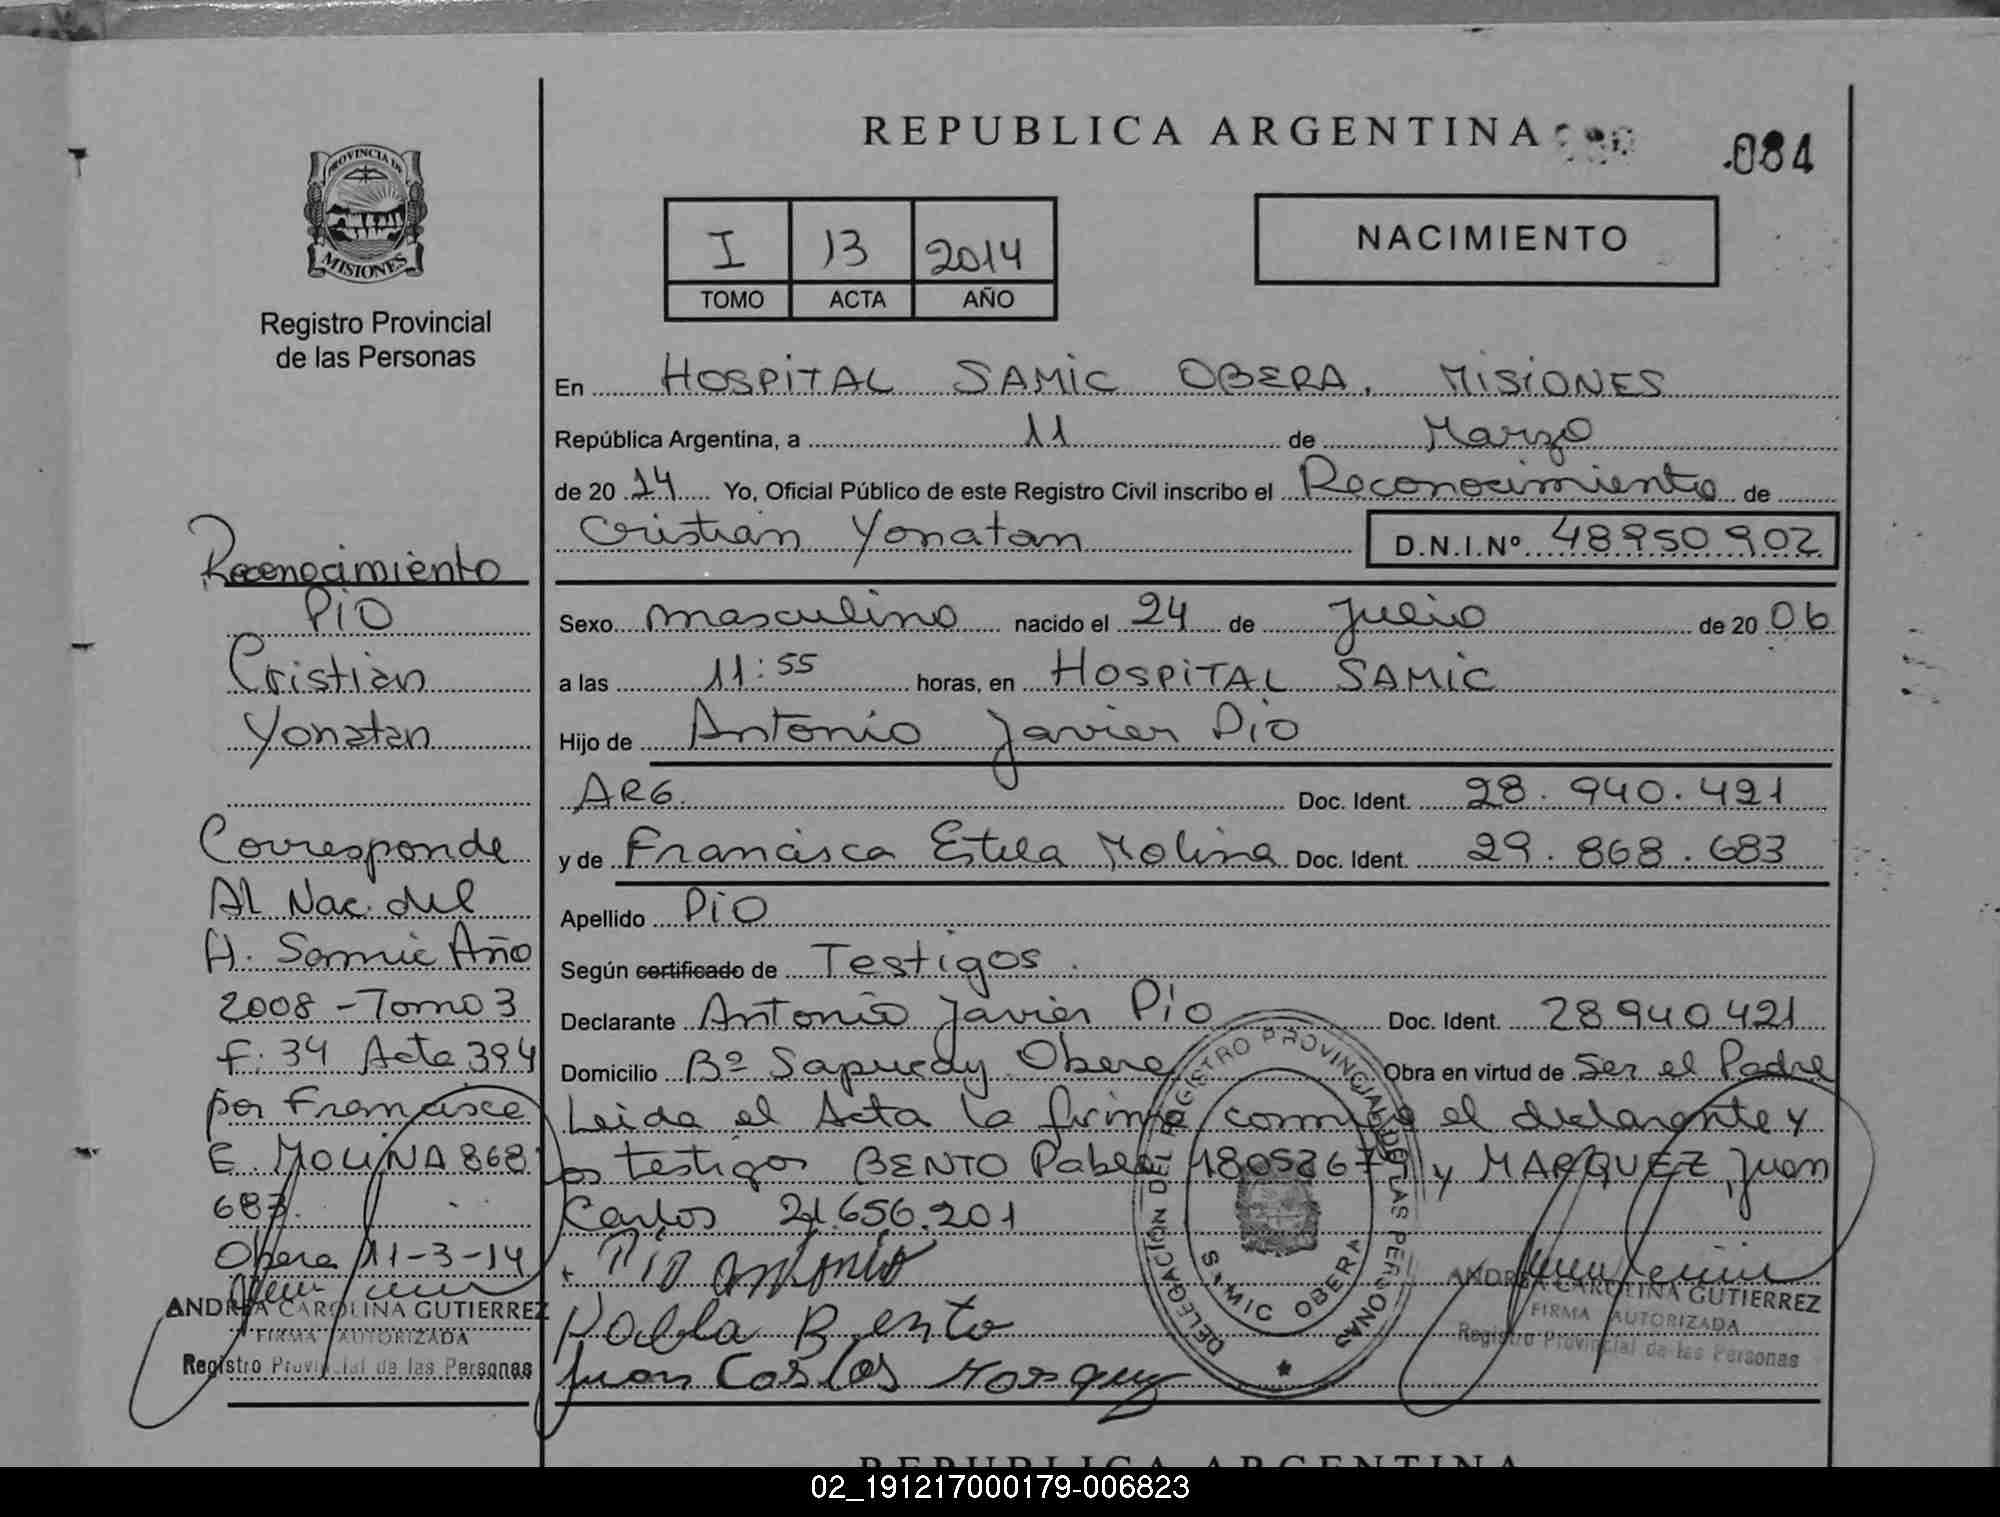 REPUBLICA ARGENTINA
.084
PROVINCIA DE
MISIONES
Registro Provincial
de las Personas
I 13 2014
TOMO ACTA AÑO
NACIMIENTO
En HOSPITAL SAMIC OBERA, MISIONES
República Argentina, a 11 de Marzo
de 20 14 Yo, Oficial Público de este Registro Civil inscribo el Reconocimiento de
Cristian Yonatan D.N.I.Nº 48950902
Sexo masculino nacido el 24 de Julio de 20 06
a las 11:55 horas, en HOSPITAL SAMIC
Hijo de Antonio Javier Pio
ARG. Doc. Ident. 28.940.421
y de Francisca Estela Molina Doc. Ident. 29.868.683
Apellido PIO
Según certificado de Testigos.
Declarante Antonio Javier Pio Doc. Ident. 28940421
Domicilio Bº Sapucay Obera Obra en virtud de Ser el Padre
Leida el Acta la firma conmigo el declarante y
los testigos BENTO Pablo y MARQUEZ, Juan
Carlos 21.656.201
Pio Antonio
Pablo Bento
Juan Carlos Marquez
Reconocimiento
PIO
Cristian
Yonatan
Corresponde
Al Nac. del
H. Samic Año
2008 - Tomo 3
F: 34 Acta 394
por Francisca
E. MOLINA 868
683.
Obera 11-3-14
ANDREA CAROLINA GUTIERREZ
FIRMA AUTORIZADA
Registro Provincial de las Personas
DELEGACIÓN DEL REGISTRO PROVINCIAL DE LAS PERSONAS
SAMIC OBERA
ANDREA CAROLINA GUTIERREZ
FIRMA AUTORIZADA
Registro Provincial de las Personas
REPUBLICA ARGENTINA
02_191217000179-006823